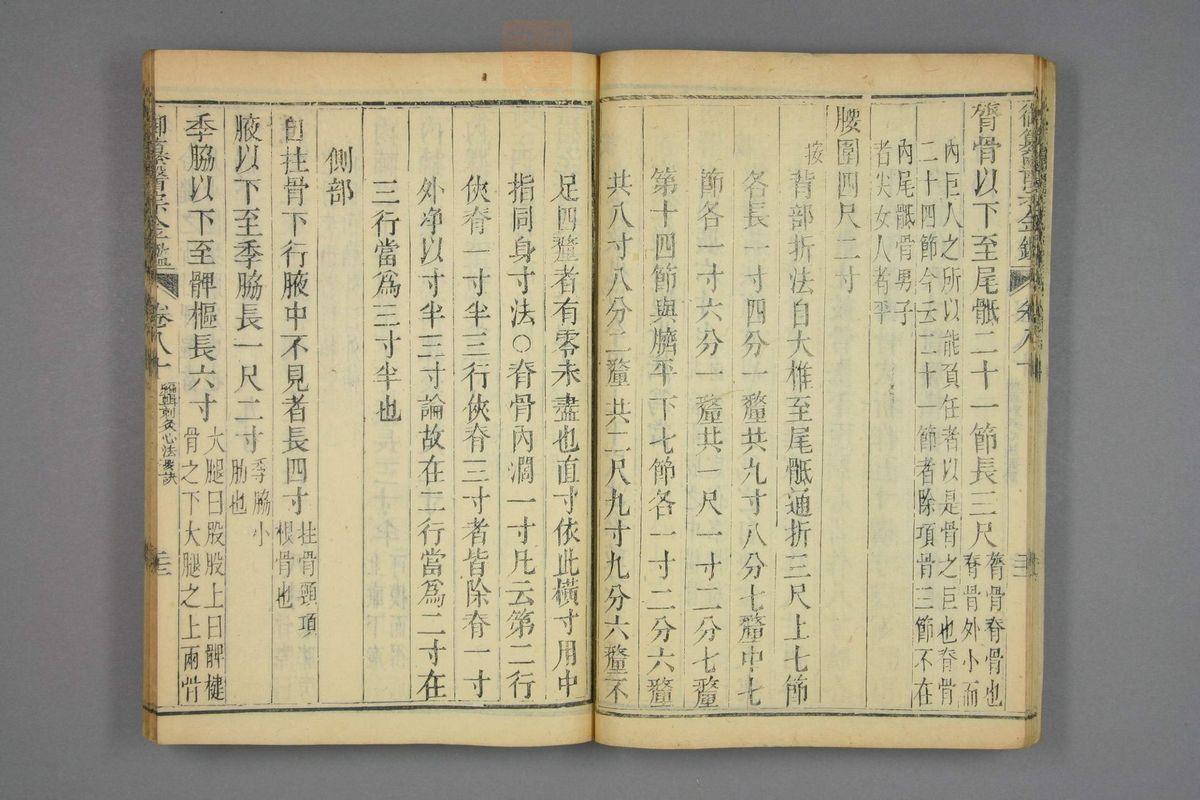 御纂醫宗金鑑 卷八十
膂骨以下至尾骶二十一節長三尺
膂骨脊骨也
脊骨外小而
內巨人之所以能頂任者以是骨之巨也脊骨
二十四節今云二十一節者除項骨三節不在
內尾骶骨男子
者尖女人者平
腰圍四尺二寸
按背部折法自大椎至尾骶通折三尺上七節
各長一寸四分一釐共九寸八分七釐中七
節各一寸六分一釐共一尺一寸二分七釐
第十四節與臍平下七節各一寸二分六釐
共八寸八分二釐共二尺九寸九分六釐不
足四釐者有零未盡也直寸依此橫寸用中
指同身寸法○脊骨內濶一寸凡云第二行
俠脊一寸半三行俠脊三寸者皆除脊一寸
外净以寸半三寸論故在二行當爲二寸在
三行當爲三寸半也
側部
自拄骨下行腋中不見者長四寸
拄骨頸項
根骨也
腋以下至季脇長一尺二寸
季脇小
肋也
季脇以下至髀樞長六寸
大腿曰股股上曰髀楗
骨之下大腿之上兩骨
御纂醫宗金鑑 卷八十 編輯刺灸心法要訣